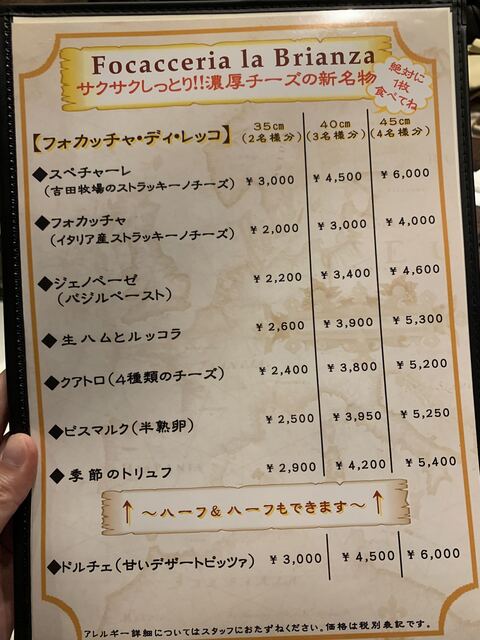 Focacceria la Brianza
サクサクしっとり!!濃厚チーズの新名物
絶対に
1枚
食べてね
【フォカッチャ・ディ・レッコ】
35cm
(2名様分)
40cm
(3名様分)
45cm
(4名様分)
◆スペチャーレ
(吉田牧場のストラッキーノチーズ)
¥3,000 ¥4,500 ¥6,000
◆フォカッチャ
(イタリア産ストラッキーノチーズ)
¥2,000 ¥3,000 ¥4,000
◆ジェノベーゼ
(バジルペースト)
¥2,200 ¥3,400 ¥4,600
◆生ハムとルッコラ ¥2,600 ¥3,900 ¥5,300
◆クアトロ(4種類のチーズ) ¥2,400 ¥3,800 ¥5,200
◆ビスマルク(半熟卵) ¥2,500 ¥3,950 ¥5,250
◆季節のトリュフ ¥2,900 ¥4,200 ¥5,400
↑ ～ハーフ&ハーフもできます～ ↑
◆ドルチェ(甘いデザートピッツァ) ¥3,000 ¥4,500 ¥6,000
アレルギー詳細についてはスタッフにおたずねください。価格は税別表記です。